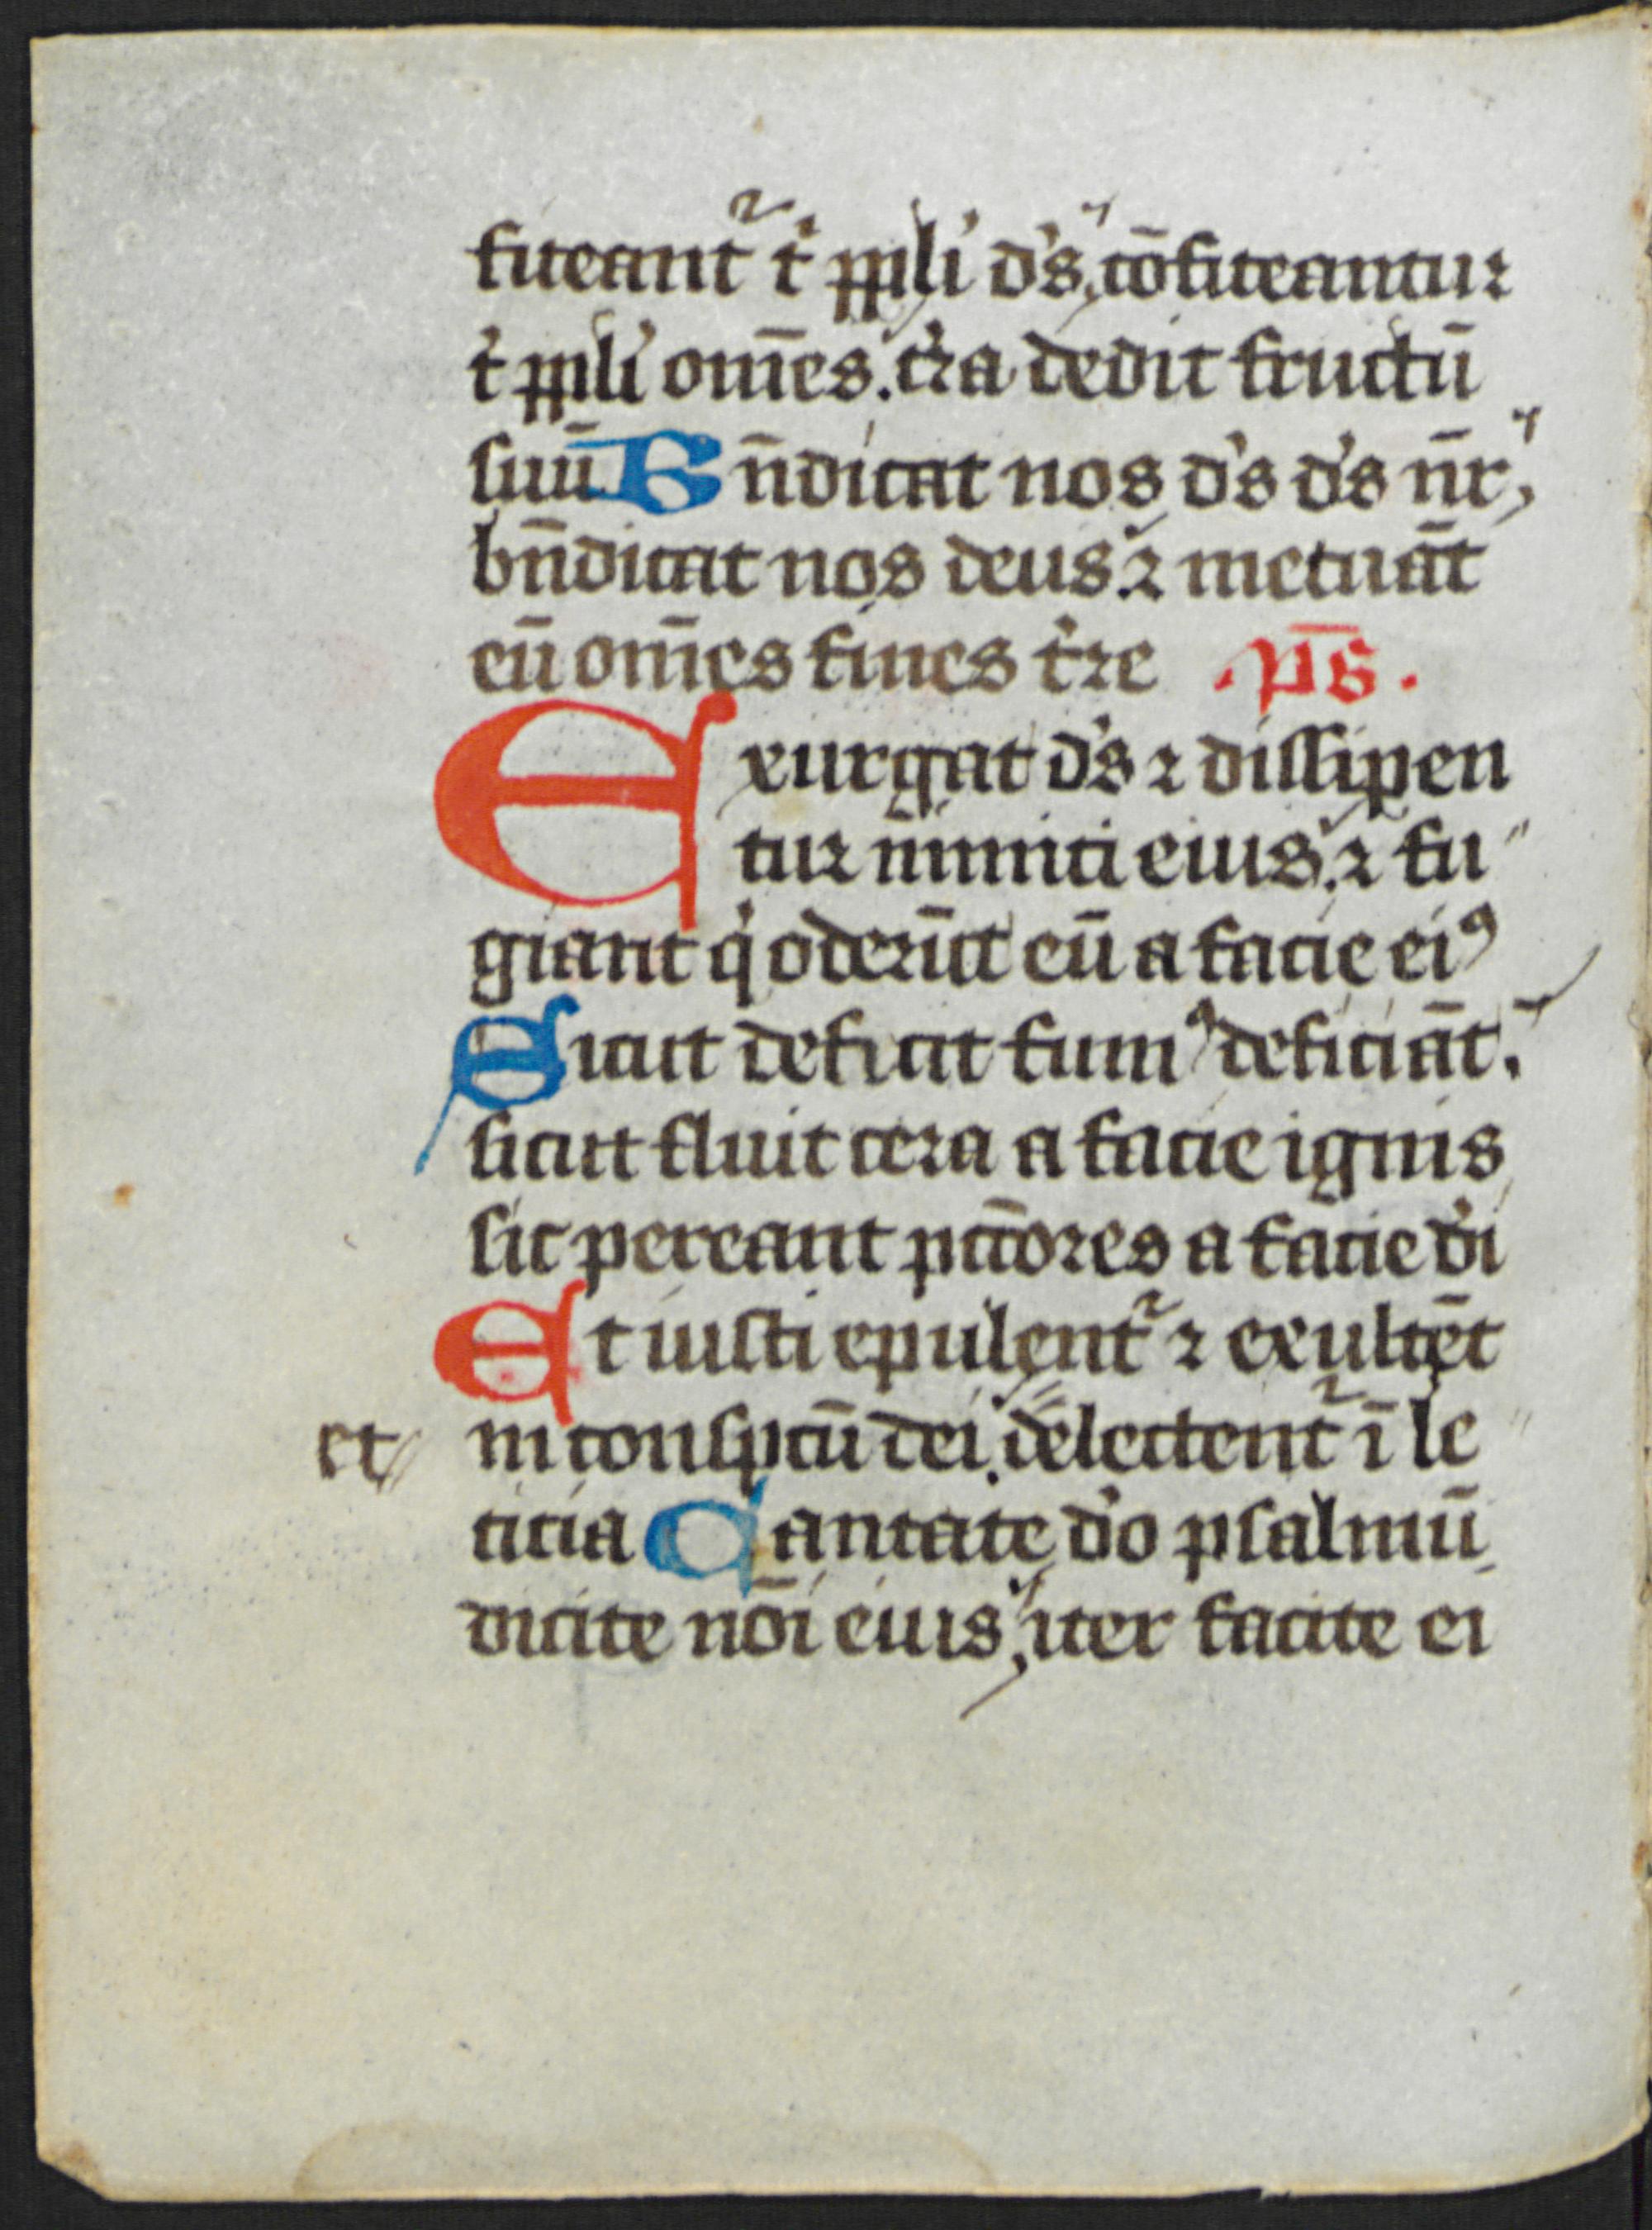 fiteant᷑ t' ppli d's, cōfiteantur
t' ppli om̄es. t'ra dedit fructū
suū Bn̄dicat nos d's d's n̄r,
bn̄dicat nos deus ⁊ metuāt
eū om̄es fines t're .ps̄.
Exurgat d's ⁊ dissipen
tur inimici eius. ⁊ fu
giant q' oderūt eū a facie eiꝰ
Sicut deficit fumꝰ deficiāt.
sicut fluit cera a facie ignis
sic pereant pcc̄ores a facie d'i
Et iusti epulent᷑ ⁊ exultēt
et// in conspcū dei. delectent᷑ ī le
ticia Cantate d'o psalmū
dicite nōi eius, iter facite ei